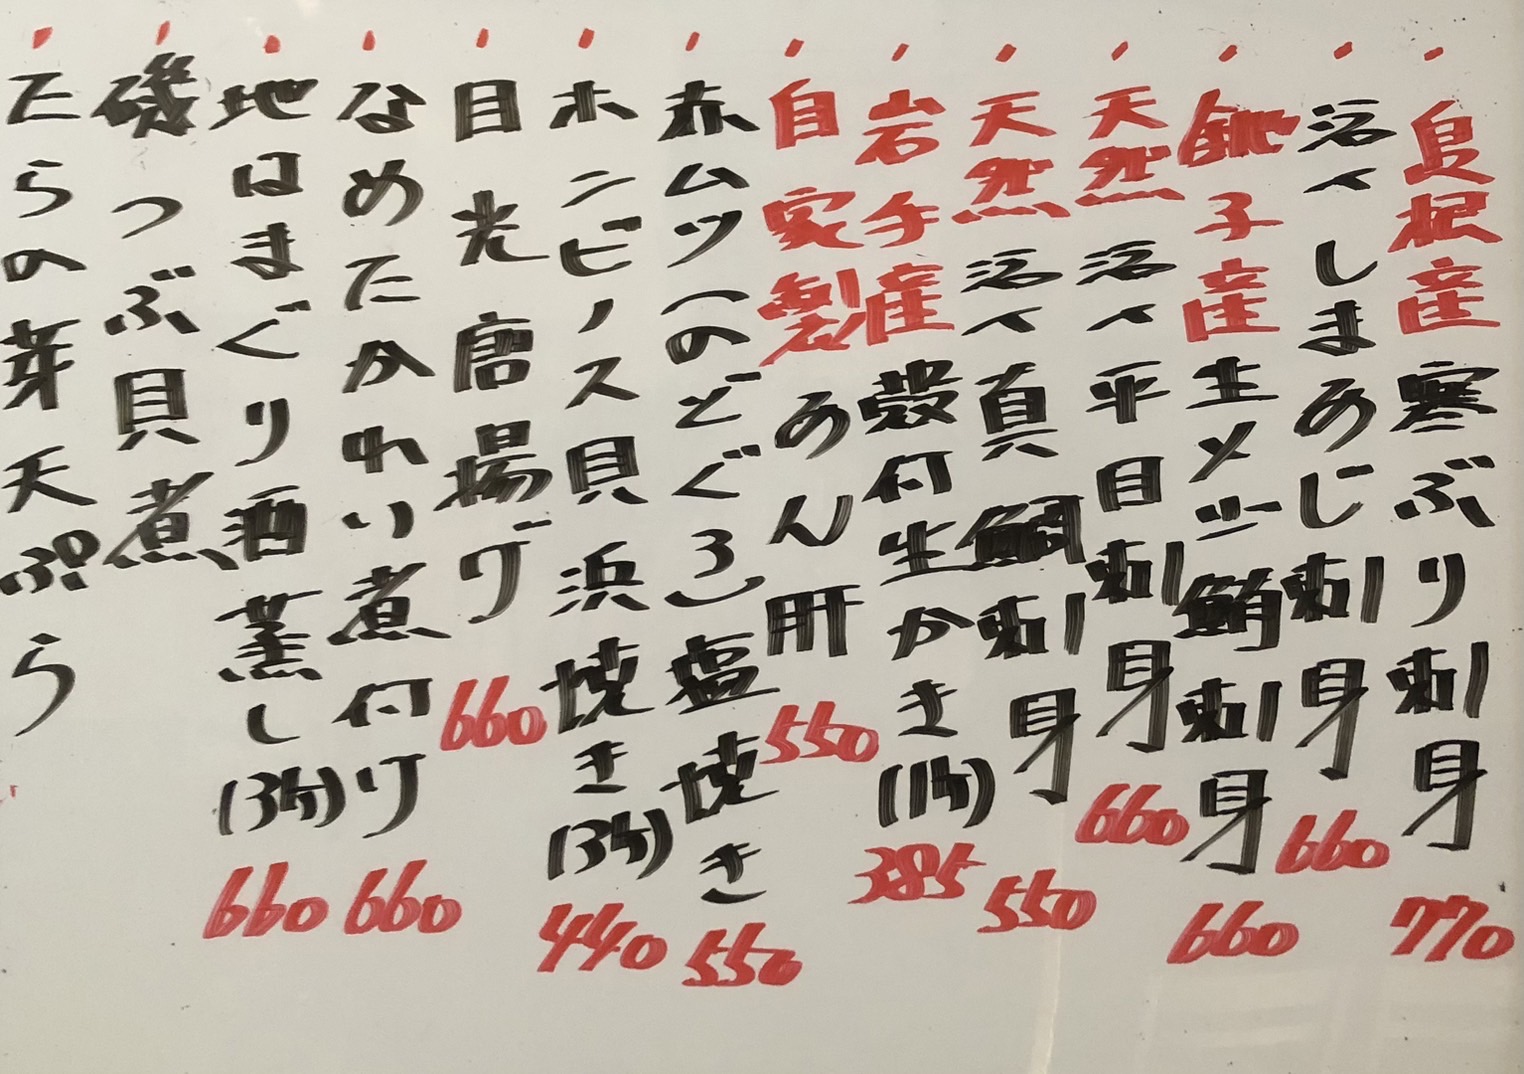 ・島根産寒ぶり刺身 770
・活〆しまあじ刺身 660
・銚子産生メバチ鮪刺身 660
・天然活〆平目刺身 660
・天然活〆真鯛刺身 550
・岩手産殻付生かき 385
・自家製あん肝 550
・赤ムツ(のどぐろ)塩焼き 550
・ホンビノス貝浜焼き 440
・目光唐揚げ 660
・なめたかれい煮付け 660
・地はまぐり酒蒸し 660
・磯つぶ貝煮
・たらの芽天ぷら